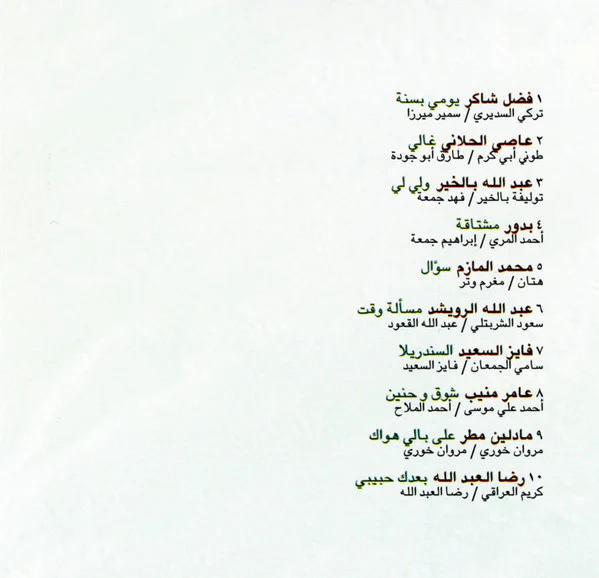 ١ فضل شاكر يومي بسنة
تركي السديري / سمير ميرزا
٢ عاصي الحلاني غالي
طوني أبي كرم / طارق أبو جودة
٣ عبد الله بالخير ولي لي
توليفة بالخير / فهد جمعة
٤ بدور مشتاقة
أحمد المري / إبراهيم جمعة
٥ محمد المازم سؤال
هتان / مغرم وتر
٦ عبد الله الرويشد مسألة وقت
سعود الشربتلي / عبد الله القعود
٧ فايز السعيد السندريلا
سامي الجمعان / فايز السعيد
٨ عامر منيب شوق و حنين
أحمد علي موسى / أحمد الملاح
٩ مادلين مطر على بالي هواك
مروان خوري / مروان خوري
١٠ رضا العبد الله بعدك حبيبي
كريم العراقي / رضا العبد الله